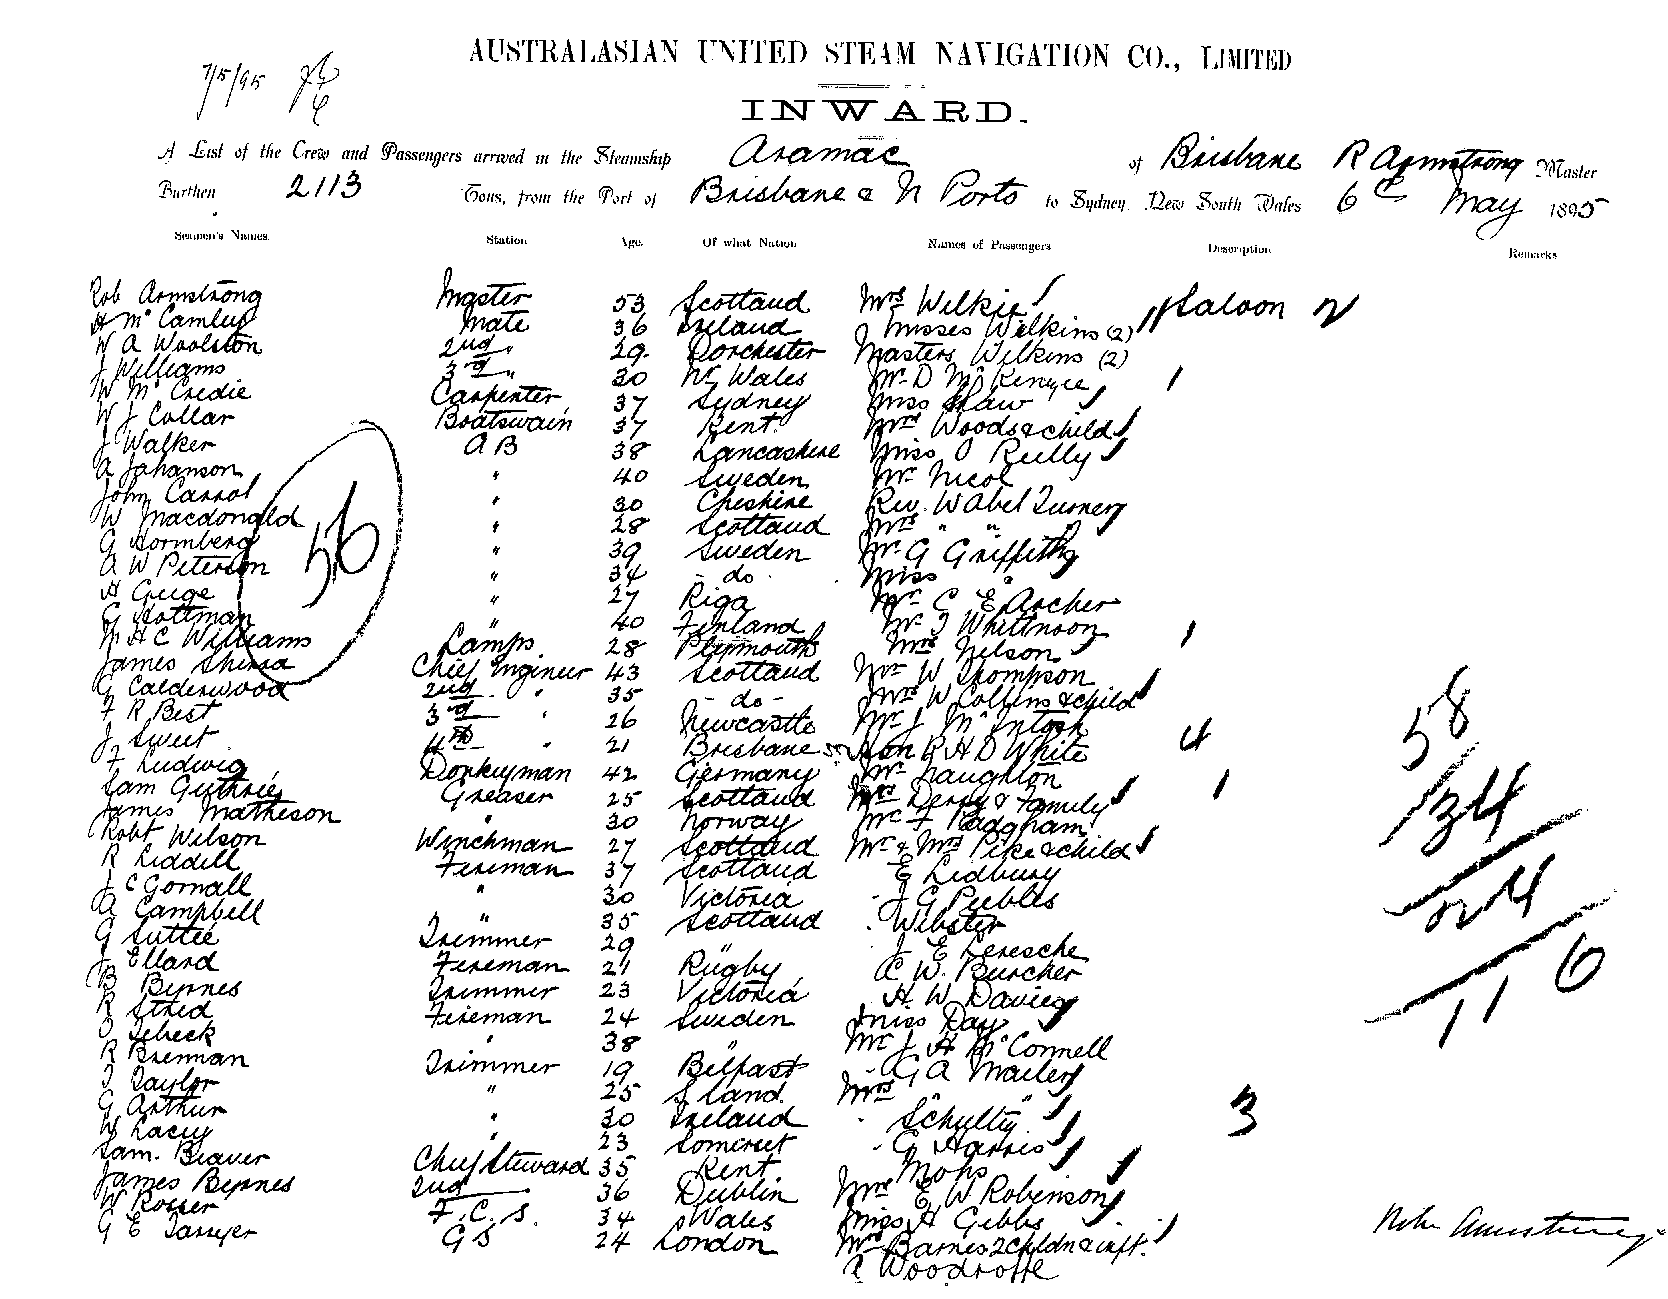 AUSTRALASIAN UNITED STEAM NAVIGATION CO., LIMITED
7/5/95
INWARD.
A List of the Crew and Passengers arrived in the Steamship Aramac of Brisbane R Armstrong Master
Burthen 2113 Tons, from the Port of Brisbane & N Ports to Sydney, New South Wales 6th May 1895
Seamen's Names. Station Age. Of what Nation Names of Passengers Description Remarks
Rob Armstrong Master 53 Scotland Mrs Wilkie Saloon 2
H McCamley Mate 36 Ireland Misses Wilkins (2)
W A Woolston 2nd " 29 Dorchester Masters Wilkins (2)
J Williams 3rd " 30 N. Wales Mr D McKenzie 1
W McCredie Carpenter 37 Sydney Miss Shaw
W J Collar Boatswain 37 Kent Mrs Woods & child
J Walker A B 38 Lancashire Miss O Reilly
A Johanson " 40 Sweden Mr Nicol
John Carrol " 30 Cheshire Rev. W Abel Turner
W Macdonald " 28 Scotland Mrs " "
G Hormberg 56 " 39 Sweden Mr G Griffiths
A W Peterson " 34 - do - Miss "
H Geige " 27 Riga Mr C E Archer
G Hottman " 40 Finland Mr T Whitmoon
W H C Williams Lamps 28 Plymouth Mrs Nelson 1
James Shirra Chief Engineer 43 Scotland Mr W Thompson
G Calderwood 2nd " 35 - do - Mrs W Collins & child
F R Best 3rd " 26 Newcastle Mr J McIntosh 58
J Sweet 4th " 21 Brisbane Hon R H D White 4
F Ludwig Donkeyman 42 Germany Mr Laughton
Sam Guthrie Greaser 25 Scotland Mrs Derry & Family 1 /34
James Matheson " 30 Norway Mr F Padgham
Robt Wilson Winchman 27 Scotland Mr & Mrs Pike & child
R Liddell Fireman 37 Scotland E Ledbury
J C Gornall " 30 Victoria J G Peebles 24
A Campbell " 35 Scotland Webster
G Suttie Trimmer 29 " J E Leresche
J Ellard Fireman 21 Rugby C W. Burcher 116
B Byrnes Trimmer 23 Victoria H W Davies
R Stred Fireman 24 Sweden Miss Day
O Tebeck " 38 " Mr J H McConnell
R Brennan Trimmer 19 Belfast G A Mailer
T Taylor " 25 S land. Mrs "
G Arthur " 30 Ireland " Schultz 3
W Lacey " 23 Somerset " G Harris
Sam. Beaver Chief Steward 35 Kent " Mops
James Byrnes 2nd " 36 Dublin Mrs E W Robinson
W Rosser F. C. S. 34 S Wales Miss H Gibbs
G E Sawyer G S 24 London Mrs Barnes 2 chldn & inft.
A Woodroffe
Robt Armstrong